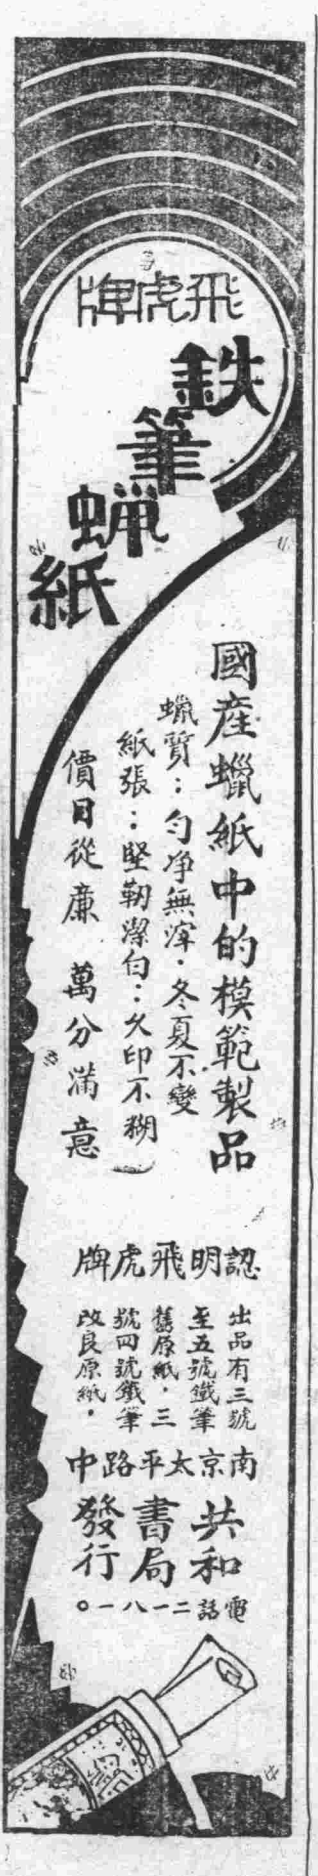 飛虎牌
鉄筆蝋紙
國産蠟紙中的模範製品
蠟質：勻净無滓．冬夏不變
紙張：堅韌潔白：久印不糊
價目從廉 萬分滿意
認明飛虎牌
出品有三號
至五號鐵筆
舊原紙．三
號四號鐵筆
改良原紙．
南京太平路中
共和
書局
發行
電話二一八一〇